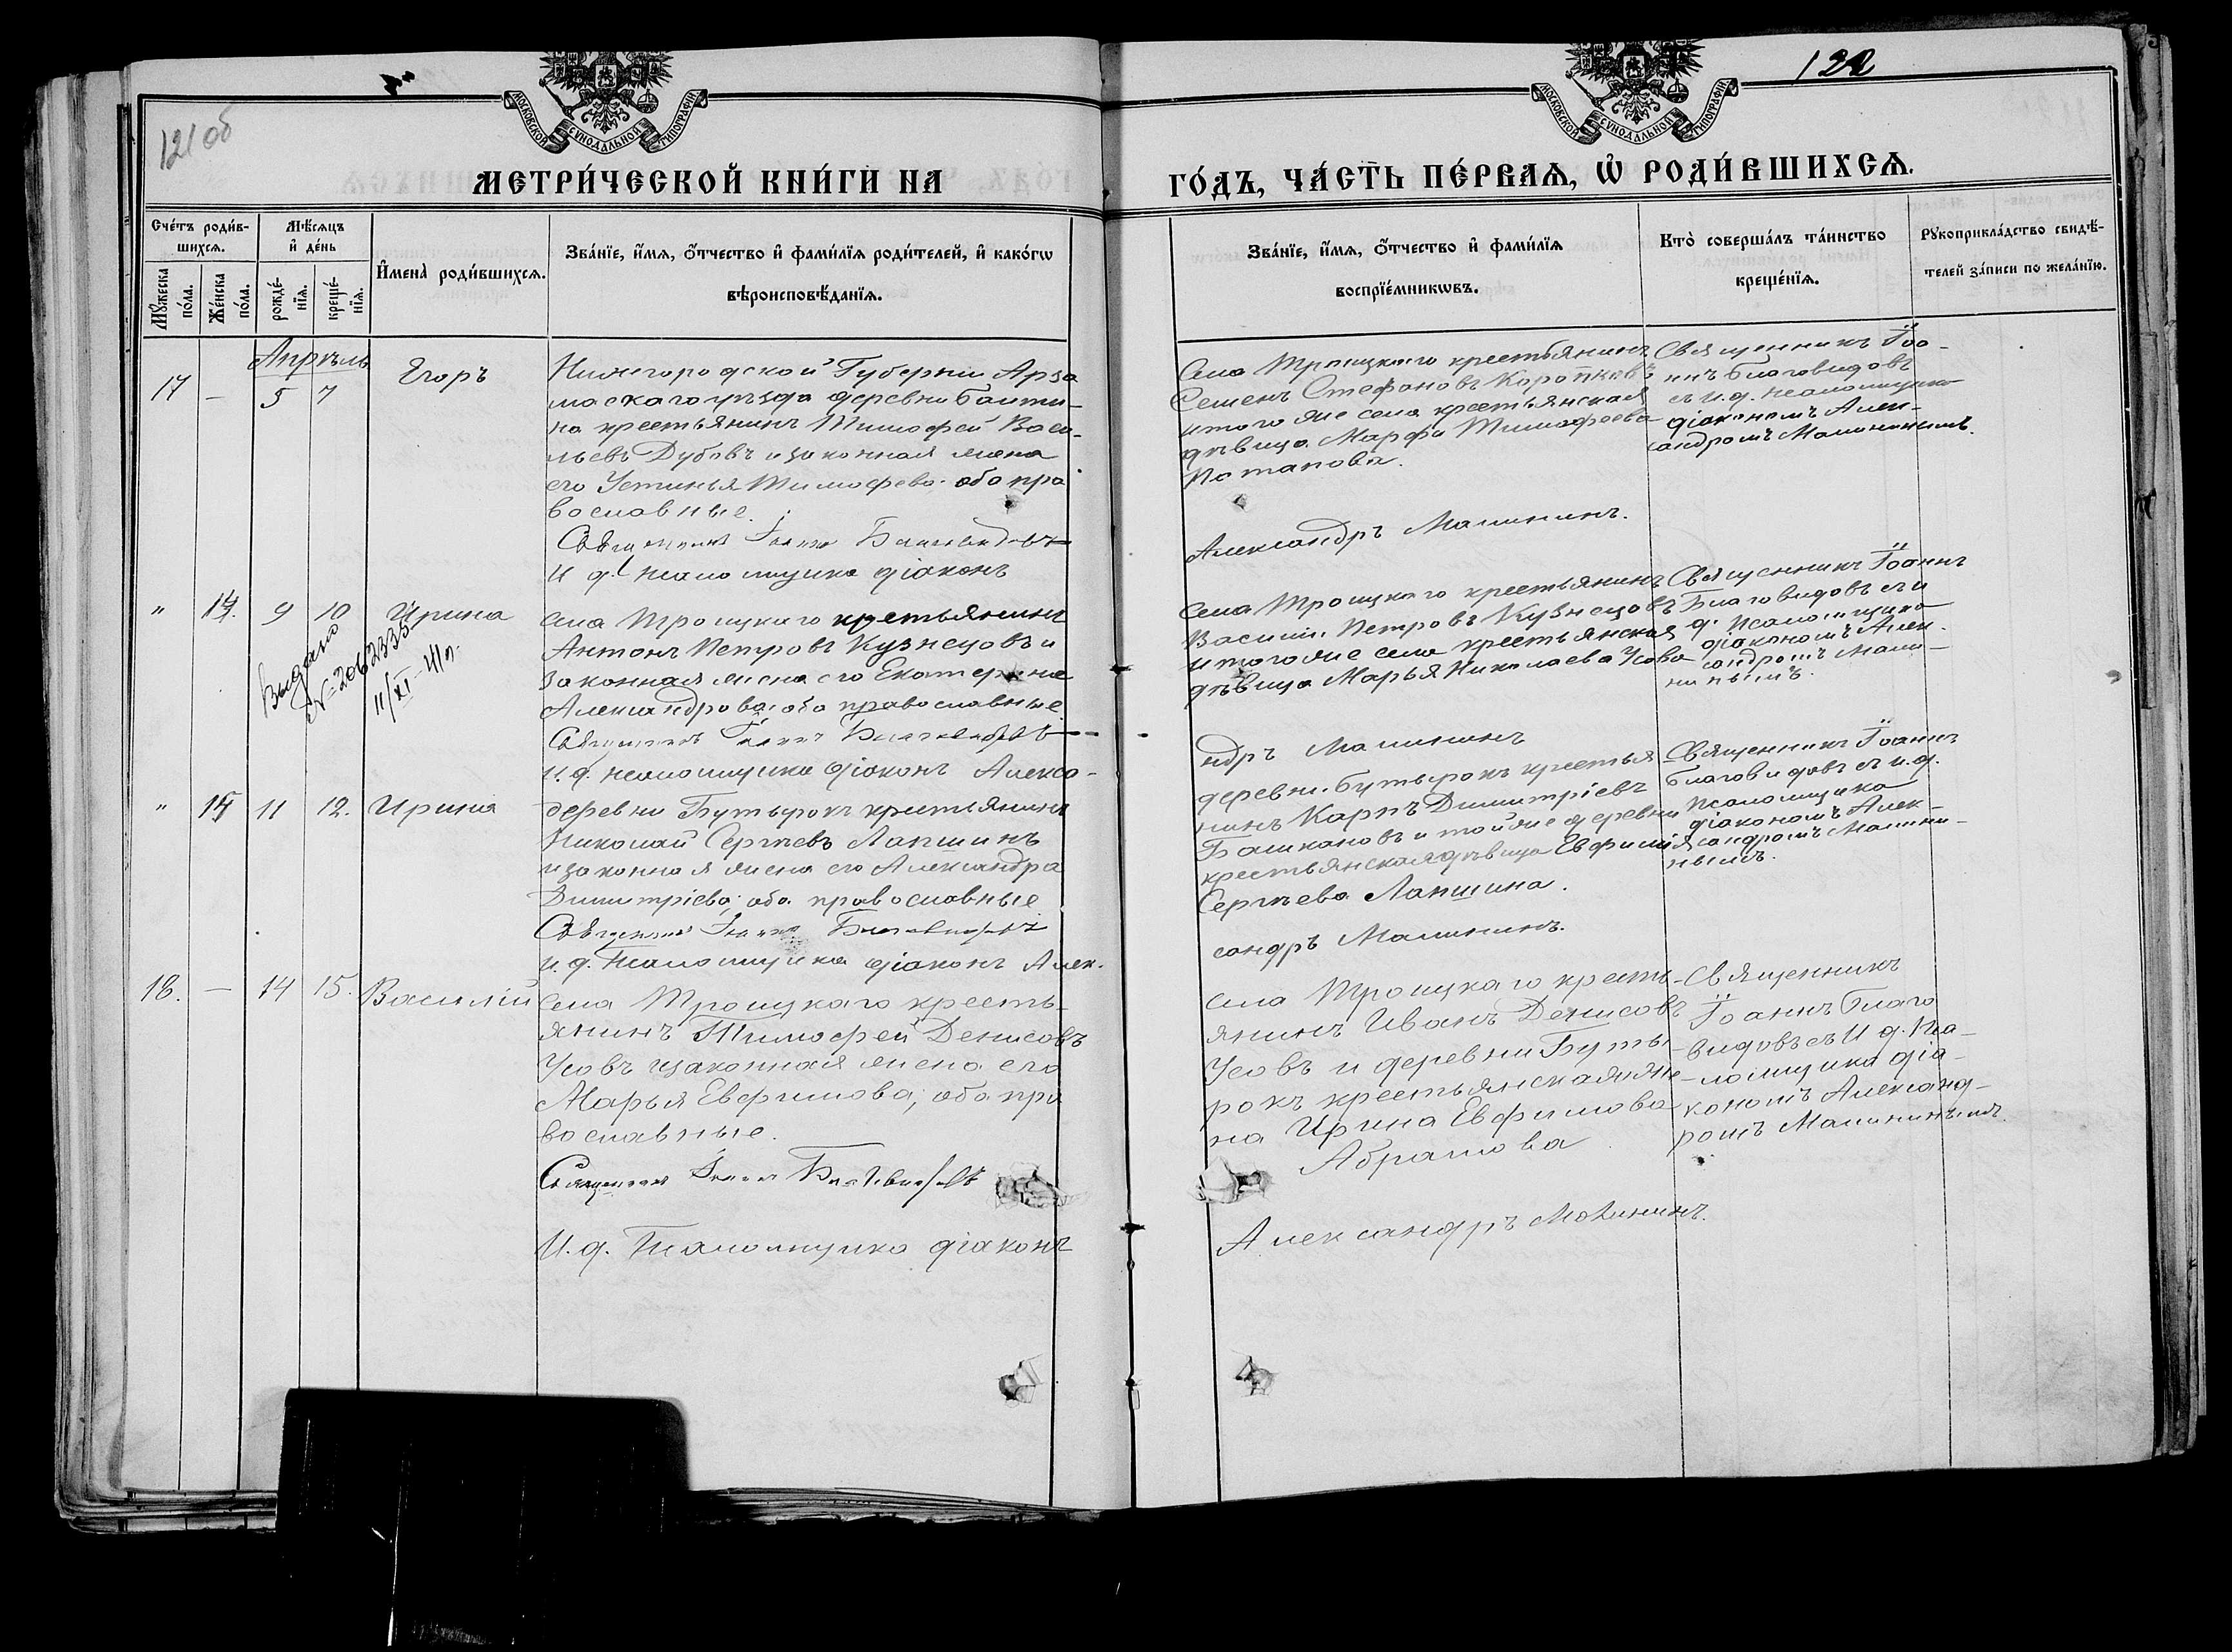 121об
122
МОСКОВСКОЙ СѴНОДАЛЬНОЙ ТИПОГРАФІИ
МОСКОВСКОЙ СѴНОДАЛЬНОЙ ТИПОГРАФІИ
МЕТРИ́ЧЕСКОЙ КНИ́ГИ НА
ГО́ДЪ, ЧА́СТЬ ПЕ́РВАѦ, Ѡ҆ РОДИ́ВШИХСѦ.
Сче́тъ роди́в-
шихсѧ.
Мꙋ́жеска
по́ла.
Же́нска
по́ла.
Мѣ́сѧцъ
и҆ де́нь
рожде́-
нїѧ.
креще́-
нїѧ.
И҆мена̀ роди́вшихсѧ.
Зва́нїе, и҆́мѧ, ѻ҆́тчество и҆ фами́лїѧ роди́телей, и҆ како́гѡ
вѣроисповѣ́данїѧ.
Зва́нїе, и҆́мѧ, ѻ҆́тчество и҆ фами́лїѧ
воспрїе́мникѡвъ.
Кто̀ соверша́лъ та́инство
креще́нїѧ.
Рꙋкоприкла́дство свидѣ́-
телей за́писи по жела́нїю.
Апрѣль
17 — 5 7 Егоръ
Нижегородской Губерніи Арза
маскаго уѣзда деревни
на крестьянинъ Тимофей Васи-
льевъ Дубовъ и законная жена
его Устинья Тимофева. оба пра
вославные.
Священникъ Іоаннъ Благовидовъ
И д. псаломщика діаконъ
Села Троицкаго крестьянинъ
Семенъ Стефановъ Коротковъ
и того же села крестьянская
дѣвица Марфа Тимофеева
Потапова.
Александръ Малининъ.
Священникъ Іоа-
ннъ Благовидовъ
съ и.д. псаломщика
діакономъ Алек-
сандромъ Малининымъ.
" 14. 9 10 Ирина
Выдано
№=2062335
11/XI-41г.
Села Троицкаго крестьянинъ
Антонъ Петровъ Кузнецовъ и
законная жена его Екатерина
Александрова: оба православные
Священникъ Іоаннъ Благовидовъ
и.д. псаломщика діаконъ Алекса-
Села Троицкаго крестьянинъ
Василій Петровъ Кузнецовъ
и того же села крестьянская
дѣвица Марья Николаева Усова
ндръ Малининъ
Священникъ Іоаннъ
Благовидовъ съ и
д. псаломщика
діакономъ Алек-
сандромъ Мали-
нинымъ.
" 15 11 12. Ирина
деревни Бутырокъ крестьянинъ
Николай Сергѣевъ Лапшинъ
и законная жена его Александра
Димитріева; оба православные
Священникъ Іоаннъ Благовидовъ
и.д. Псаломщика діаконъ Алек.
деревни Бутырокъ крестья
нинъ Карпъ Димитріевъ
Башкановъ и той же деревни
крестьянская дѣвица Евфимія
Сергѣева Лапшина.
сандръ Малининъ.
Священникъ Іоаннъ
Благовидовъ съ и.д.
псаломщика
діакономъ Алек-
сандромъ Малини-
нымъ.
18. — 14 15. Василій
Села Троицкаго кресть-
янинъ Тимофей Денисовъ
Усовъ и законная жена его
Марья Евфимова; оба пра
вославные.
Священникъ Іоаннъ Благовидовъ
И.д. Псаломщика діаконъ
Села Троицкаго кресть-
янинъ Иванъ Денисовъ
Усовъ и деревни Буты
рокъ крестьянская же-
на Ирина Евфимова
Абрамова
Александръ Малининъ.
Священникъ
Іоаннъ Благо
видовъ съ И д. Пса-
ломщика діа-
кономъ Александ-
ромъ Малининымъ.